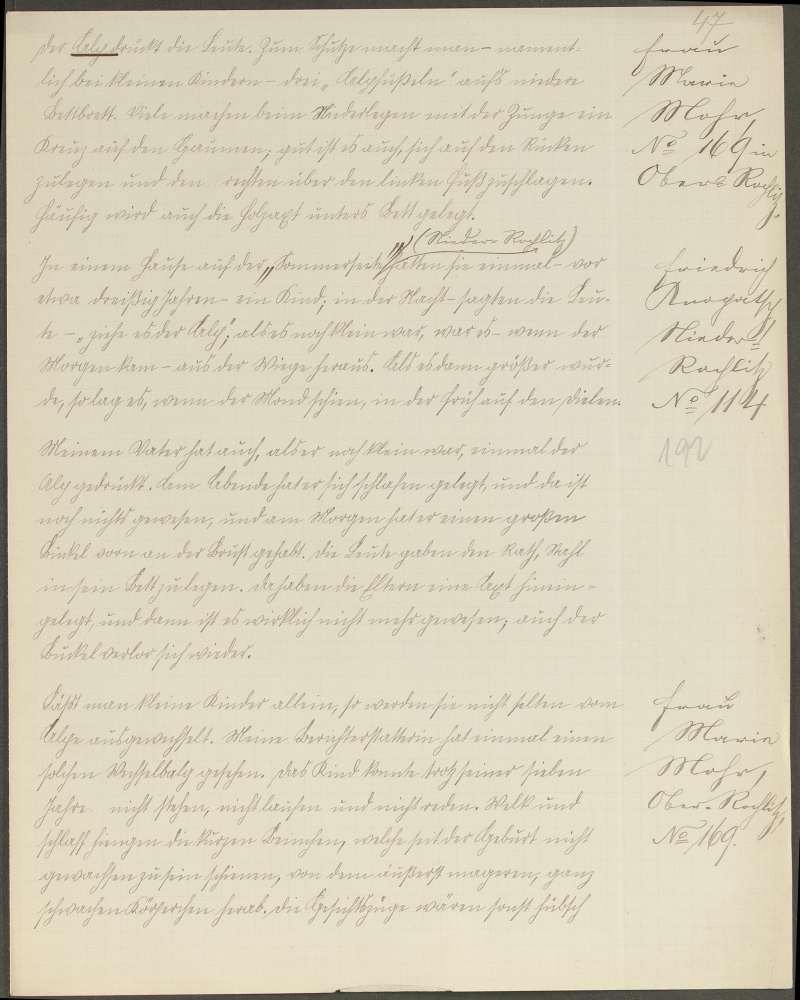 47
Der Alp drückt die Leute. Zum Schutze macht man – nament-
lich bei kleinen Kindern – drei „Alpfüßeln“ aufs niedere
Bettbrett. Viele machen beim Niederlegen mit der Zunge ein
Kreuz auf den Gaumen; gut ist es auch, sich auf den Rücken
zulegen und den rechten über den linken Fuß zuschlagen.
Häufig wird auch die Holzaxt unters Bett gelegt.
Frau
Marie
Mohr,
No 169 in
Ober-Rochlitz.
(Nieder-Rochlitz)
In einem Hause auf der „Sommerseite“ hatten sie einmal – vor
etwa dreißig Jahren – ein Kind; in der Nacht – sagten die Leu-
te – „ziehe es der Alp“; als es noch klein war, war es – wenn der
Morgen kam – aus der Wiege heraus. Als es dann größer wur-
de, so lag es, wenn der Mond schien, in der Früh auf den Dielen.
Friedrich
Nieder-
Rochlitz
No 114
Meinem Vater hat auch, als er noch klein war, einmal der
Alp gedrückt. Am Abende hat er sich schlafen gelegt, und da ist
noch nichts gewesen, und am Morgen hat er einen großen
Binkel vorn an der Brust gehabt. Die Leute gaben den Rath, Stahl
in sein Bett zu legen. Da haben die Eltern eine Axt hinein-
gelegt, und dann ist es wirklich nicht mehr gewesen; auch der
Buckel verlor sich wieder.
192
Läßt man kleine Kinder allein, so werden sie nicht selten vom
Alpe ausgewechselt. Meine Berichterstatterin hat einmal einen
solchen Wechselbalg gesehen. Das Kind konnte trotz seiner sieben
Jahre nicht stehen, nicht laufen und nicht reden. Welk und
schlaff hiengen die kurzen Beinchen, welche seit der Geburt nicht
gewachsen zu sein schienen, von dem äußerst mageren, ganz
schwachen Körperchen herab. Die Gesichtszüge wären sonst hübsch
Frau
Marie
Mohr,
Ober-Rochlitz,
No 169.